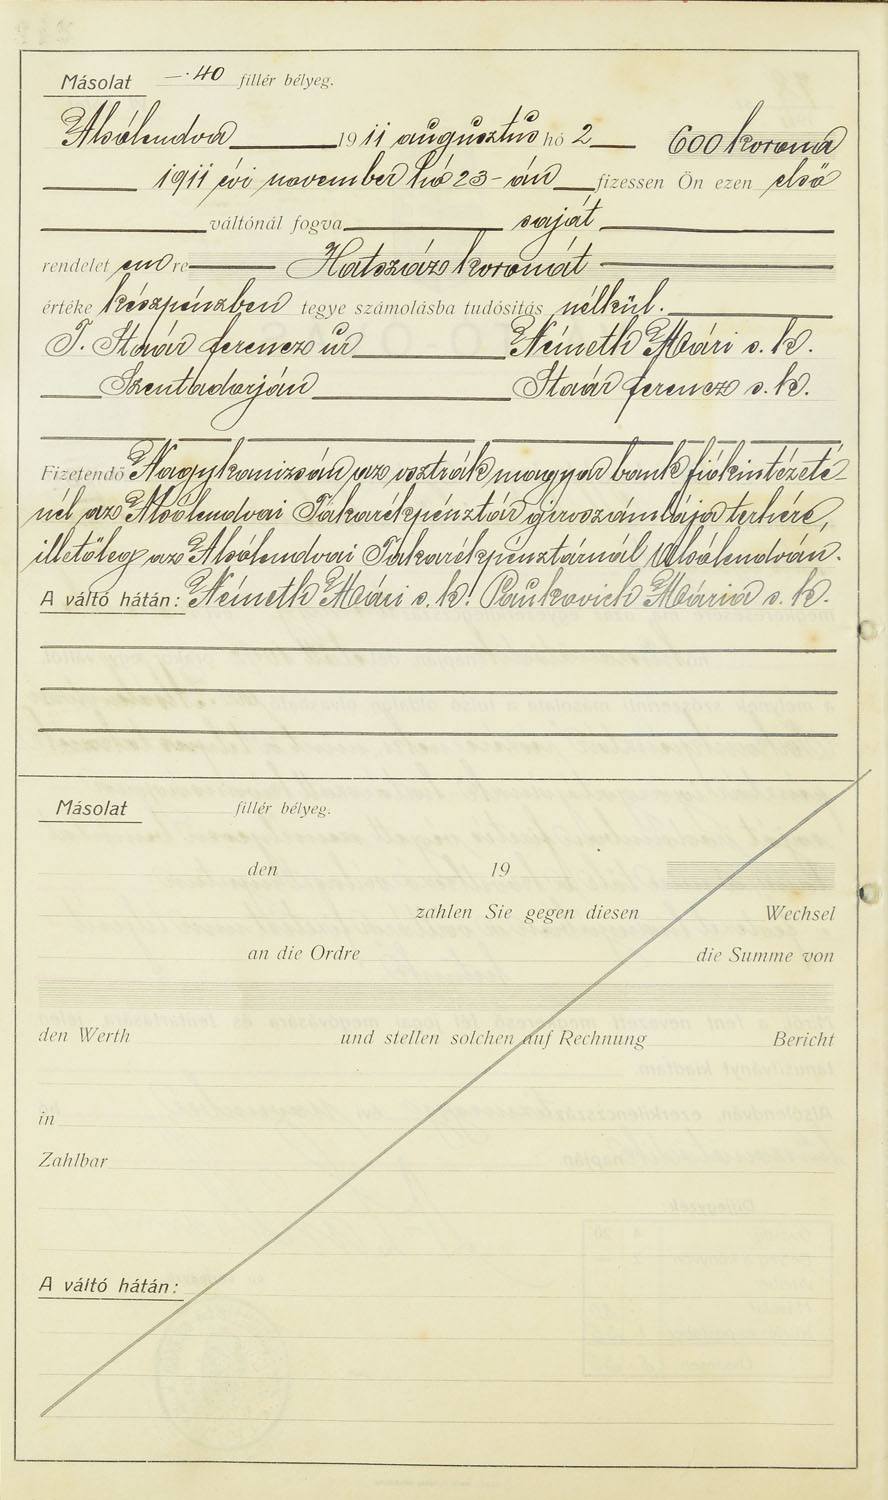 Másolat —·40 fillér bélyeg.
Alsólendva 1911 augusztus hó 2 600 korona
1911 évi november hó 23-án fizessen Ön ezen első
váltónál fogva saját
rendelet emre Hatszázs koronát
értéke készpénzben tegye számolásba tudósítás nélkül.
T. Staár ferencz úr Németh Mári s. k.
Szentadorján Staár ferencz s. k.
Fizetendő Nagykanizsán az osztrák magyar bank fiókintézeté-
nél az Alsólendvai Takarékpénztár giroszámlája terhére,
illetőleg az Alsólendvai Takarékpénztárnál Alsólendván.
A váltó hátán: Németh Mári s. k. Paukovich Mária s. k.
Másolat fillér bélyeg.
den 19
zahlen Sie gegen diesen Wechsel
an die Ordre die Summe von
den Werth und stellen solchen auf Rechnung Bericht
in
Zahlbar
A váltó hátán: